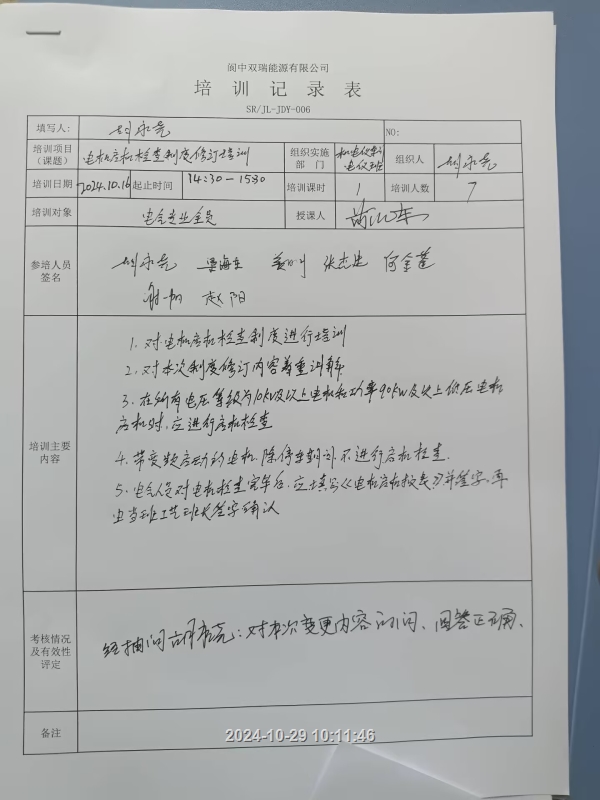 阆中双瑞能源有限公司
培训记录表
SR/JL-JDY-006
填写人: 刘永亮 NO:
培训项目(课题) 电机启机检查制度修订培训 组织实施部门 机电仪车间电仪班 组织人 刘永亮
培训日期 2024.10.16 起止时间 14:30—1530 培训课时 1 培训人数 7
培训对象 电气专业全员 授课人
参培人员签名 刘永亮 梁海生 姜川 张杰忠 何金莲
谢帆 赵阳
培训主要内容
1. 对电机启机检查制度进行培训
2. 对本次制度修订内容着重讲解
3. 在所有电压等级为10KV及以上电机和功率90KW及以上低压电机
启机时,应进行启机检查
4. 带变频启动的电机,除停车期间,不进行启机检查.
5. 电气人员对电机检查完毕后,应填写《电机启机报表》并签字,再
由当班工艺班长签字确认
考核情况及有效性评定
经抽问:对本次变更内容的问,回答正确、
备注
2024-10-29 10:11:46